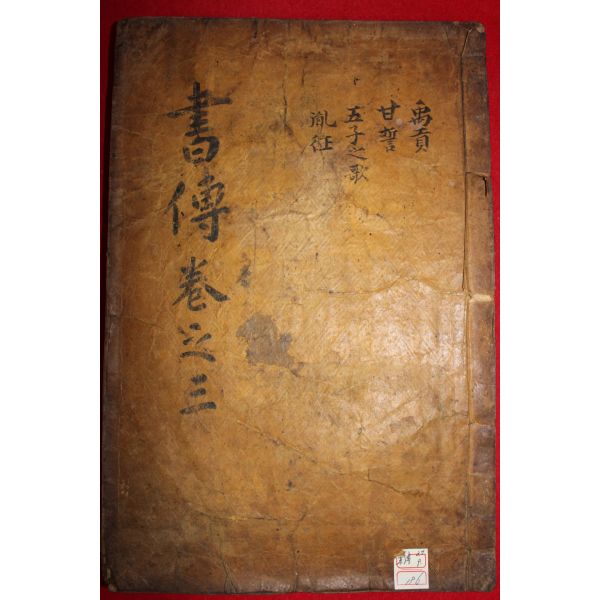 禹貢
甘誓
五子之歌
胤征
書傳卷之三
196